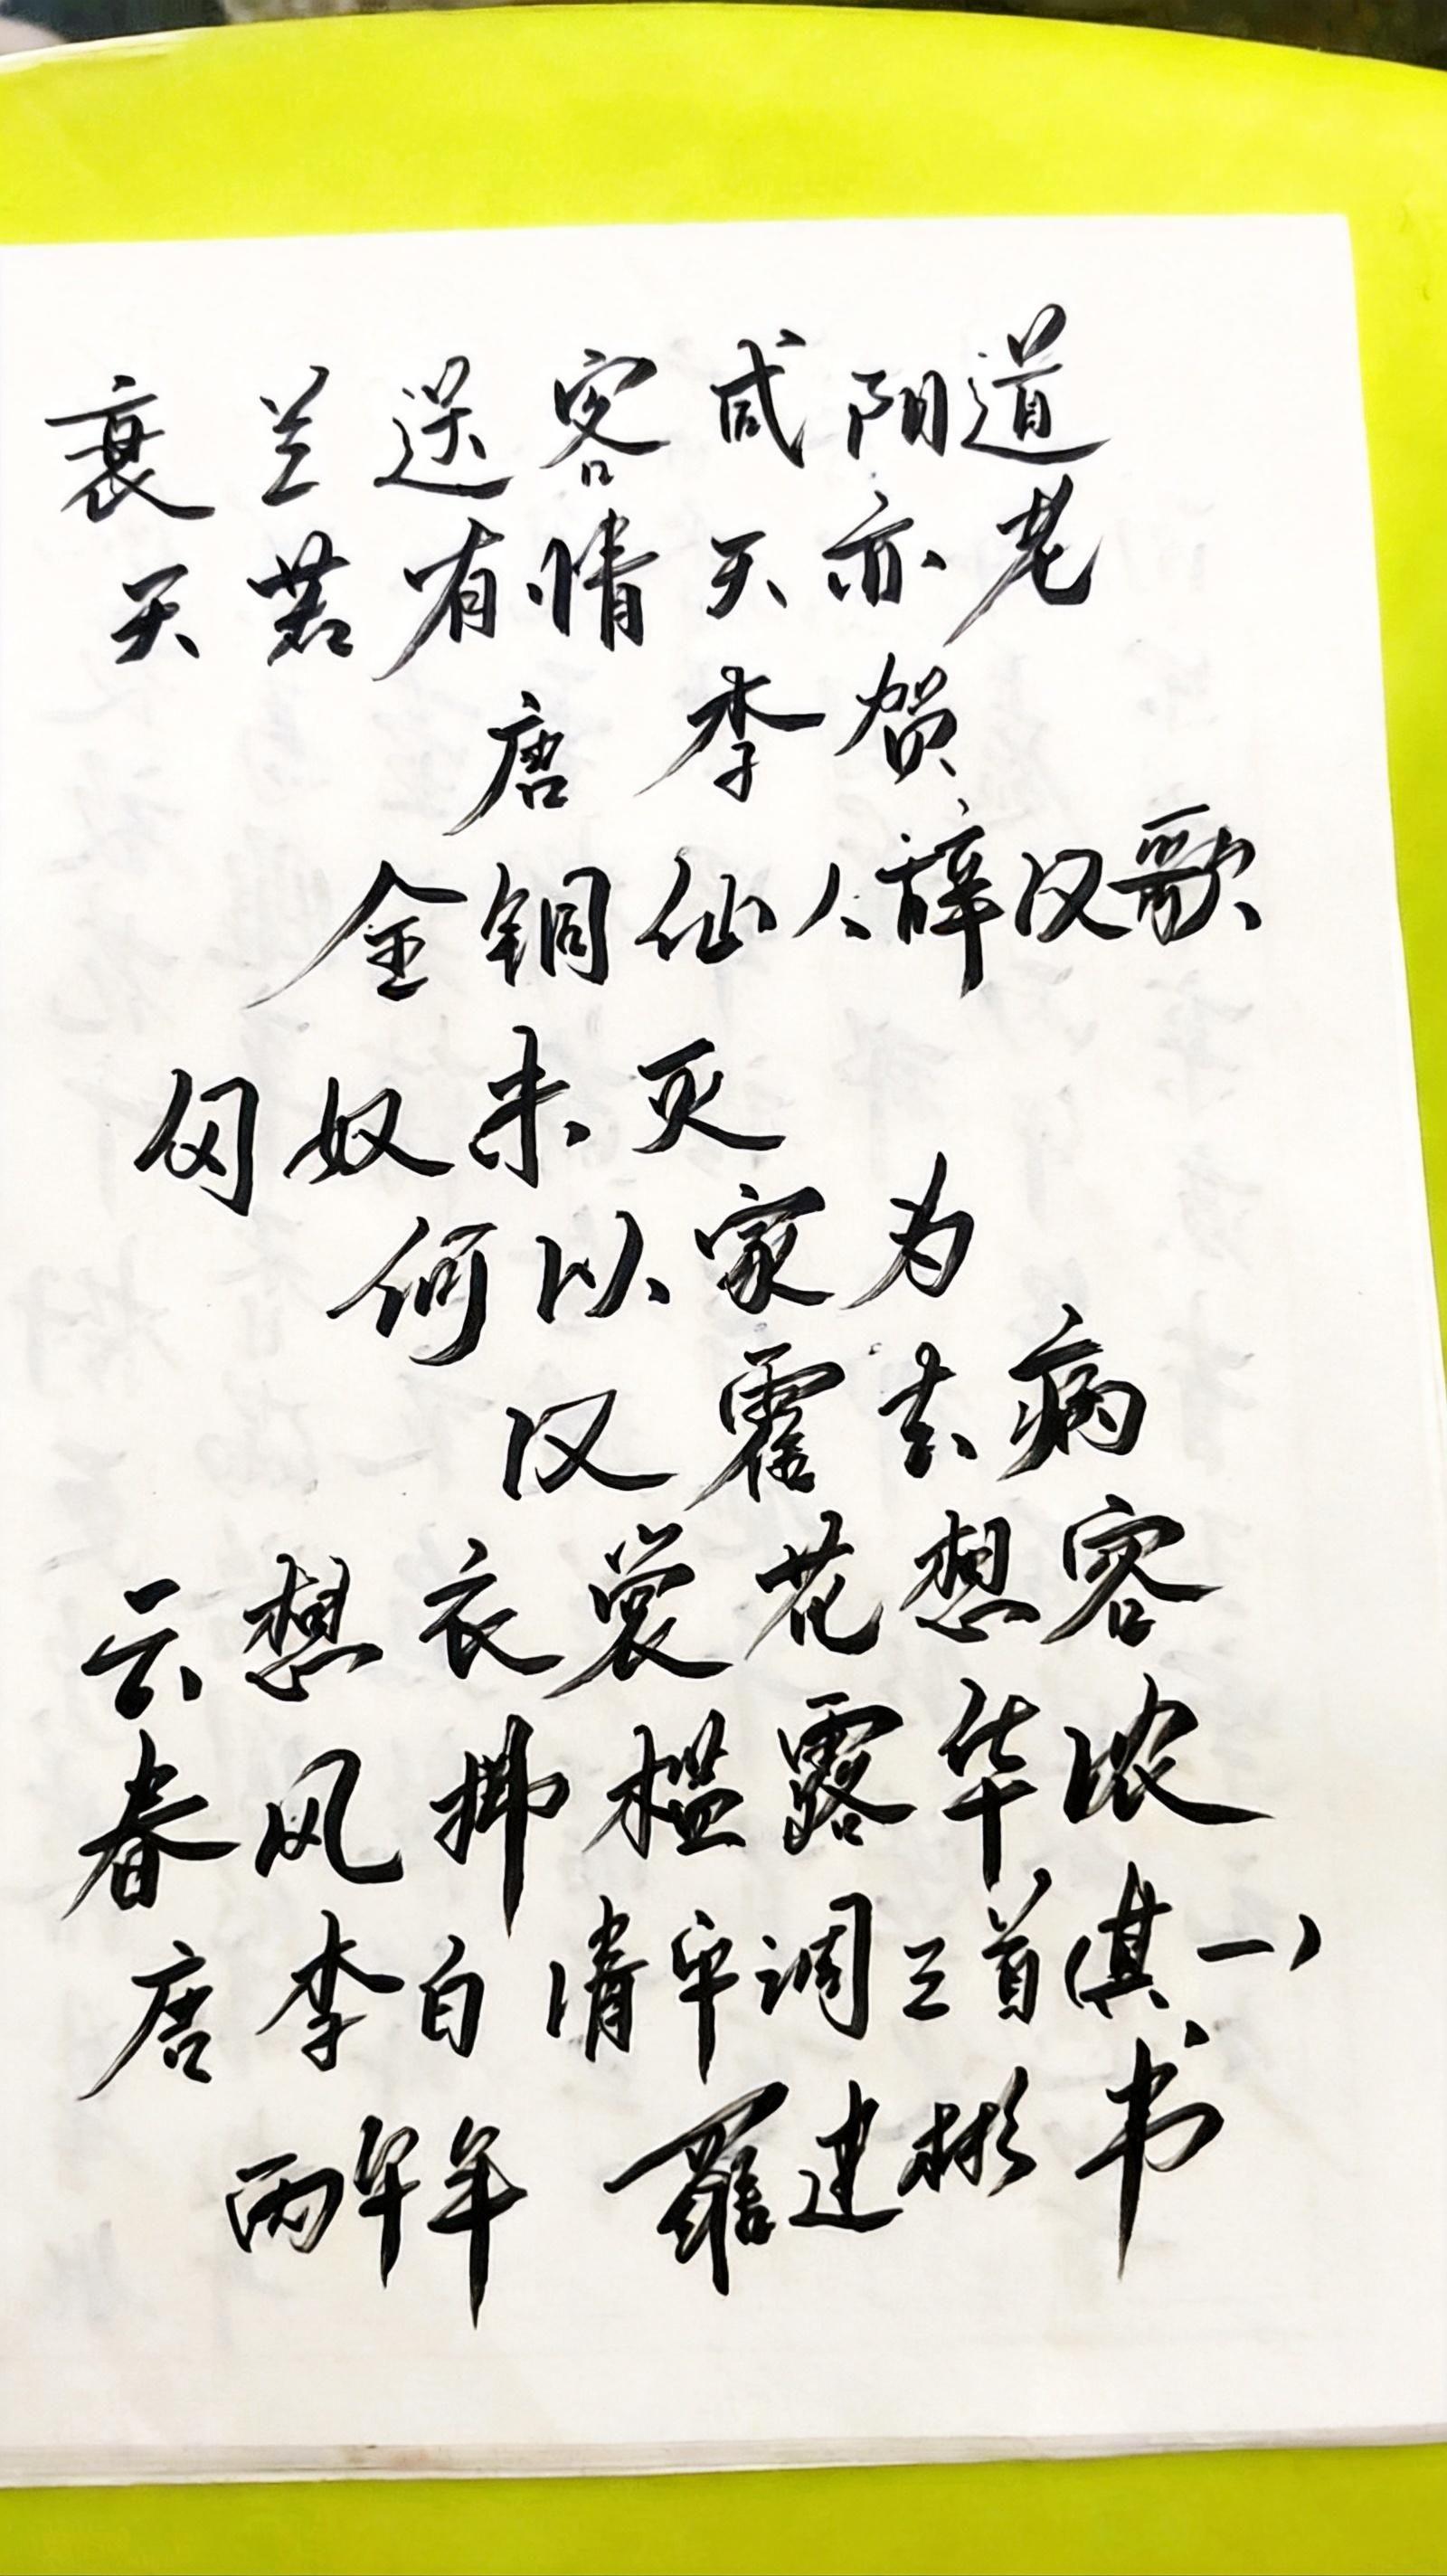 衰兰送客咸阳道
天若有情天亦老
唐 李贺
金铜仙人辞汉歌
匈奴未灭
何以家为
汉 霍去病
云想衣裳花想容
春风拂槛露华浓
唐 李白 清平调三首(其一)
丙午年 罗建彬书